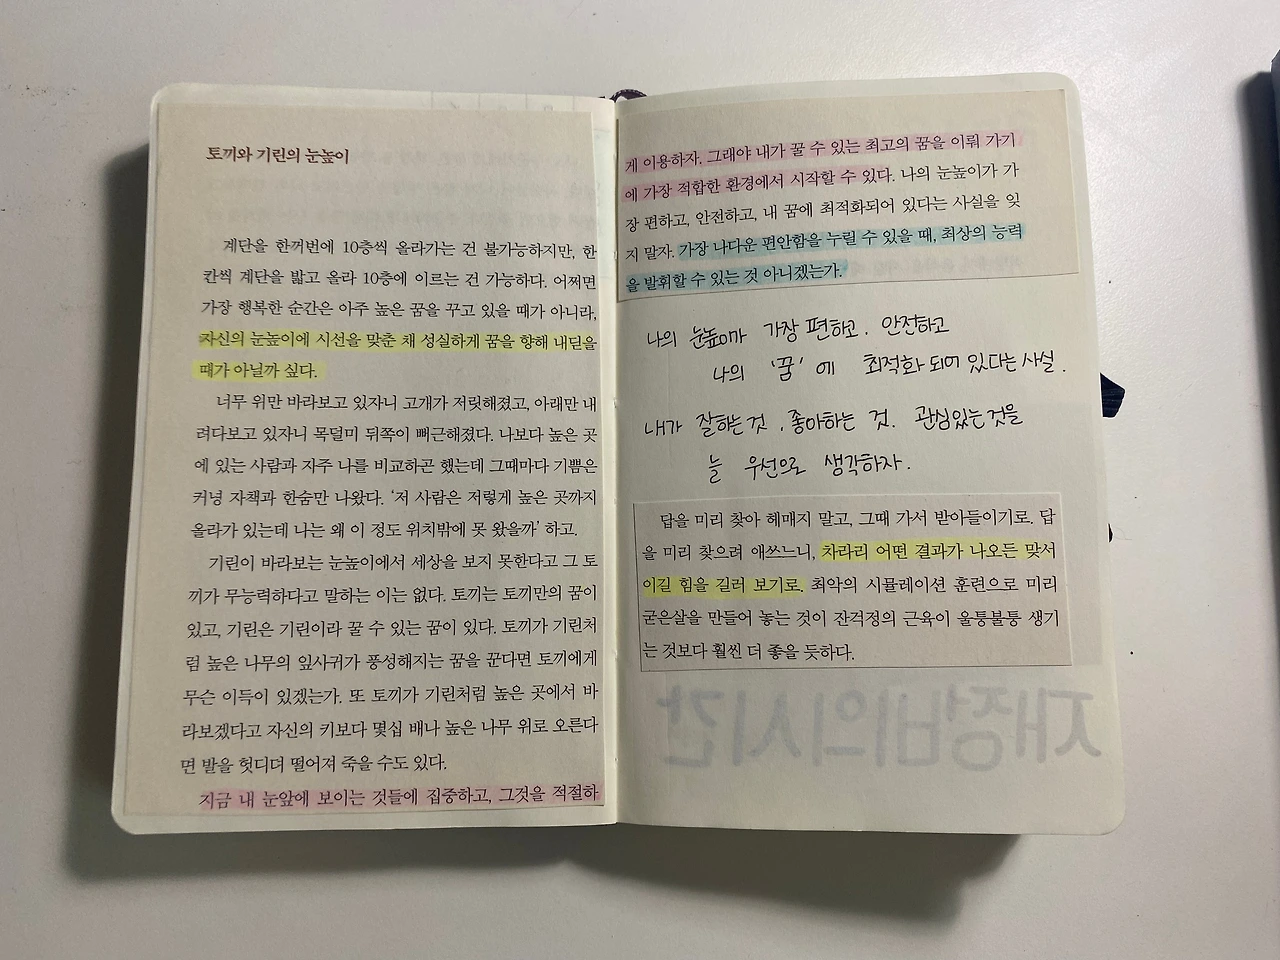 토끼와 기린의 눈높이
계단을 한꺼번에 10층씩 올라가는 건 불가능하지만, 한
칸씩 계단을 밟고 올라 10층에 이르는 건 가능하다. 어쩌면
가장 행복한 순간은 아주 높은 꿈을 꾸고 있을 때가 아니라,
자신의 눈높이에 시선을 맞춘 채 성실하게 꿈을 향해 내딛을
때가 아닐까 싶다.
너무 위만 바라보고 있자니 고개가 저릿해졌고, 아래만 내
려다보고 있자니 목덜미 뒤쪽이 뻐근해졌다. 나보다 높은 곳
에 있는 사람과 자주 나를 비교하곤 했는데 그때마다 기쁨은
커녕 자책과 한숨만 나왔다. ‘저 사람은 저렇게 높은 곳까지
올라가 있는데 나는 왜 이 정도 위치밖에 못 왔을까’ 하고.
기린이 바라보는 눈높이에서 세상을 보지 못한다고 그 토
끼가 무능력하다고 말하는 이는 없다. 토끼는 토끼만의 꿈이
있고, 기린은 기린이라 꿀 수 있는 꿈이 있다. 토끼가 기린처
럼 높은 나무의 잎사귀가 풍성해지는 꿈을 꾼다면 토끼에게
무슨 이득이 있겠는가. 또 토끼가 기린처럼 높은 곳에서 바
라보겠다고 자신의 키보다 몇십 배나 높은 나무 위로 오른다
면 발을 헛디뎌 떨어져 죽을 수도 있다.
지금 내 눈앞에 보이는 것들에 집중하고, 그것을 적절하
게 이용하자. 그래야 내가 꿀 수 있는 최고의 꿈을 이뤄 가기
에 가장 적합한 환경에서 시작할 수 있다. 나의 눈높이가 가
장 편하고, 안전하고, 내 꿈에 최적화되어 있다는 사실을 잊
지 말자. 가장 나다운 편안함을 누릴 수 있을 때, 최상의 능력
을 발휘할 수 있는 것 아니겠는가.
나의 눈높이가 가장 편하고. 안전하고
나의 '꿈'에 최적화 되어 있다는 사실.
내가 잘하는 것, 좋아하는 것. 관심있는 것을
늘 우선으로 생각하자.
답을 미리 찾아 헤매지 말고, 그때 가서 받아들이기로. 답
을 미리 찾으려 애쓰느니, 차라리 어떤 결과가 나오든 맞서
이길 힘을 길러 보기로. 최악의 시뮬레이션 훈련으로 미리
굳은살을 만들어 놓는 것이 잔걱정의 근육이 울퉁불퉁 생기
는 것보다 훨씬 더 좋을 듯하다.
재정비의 시간